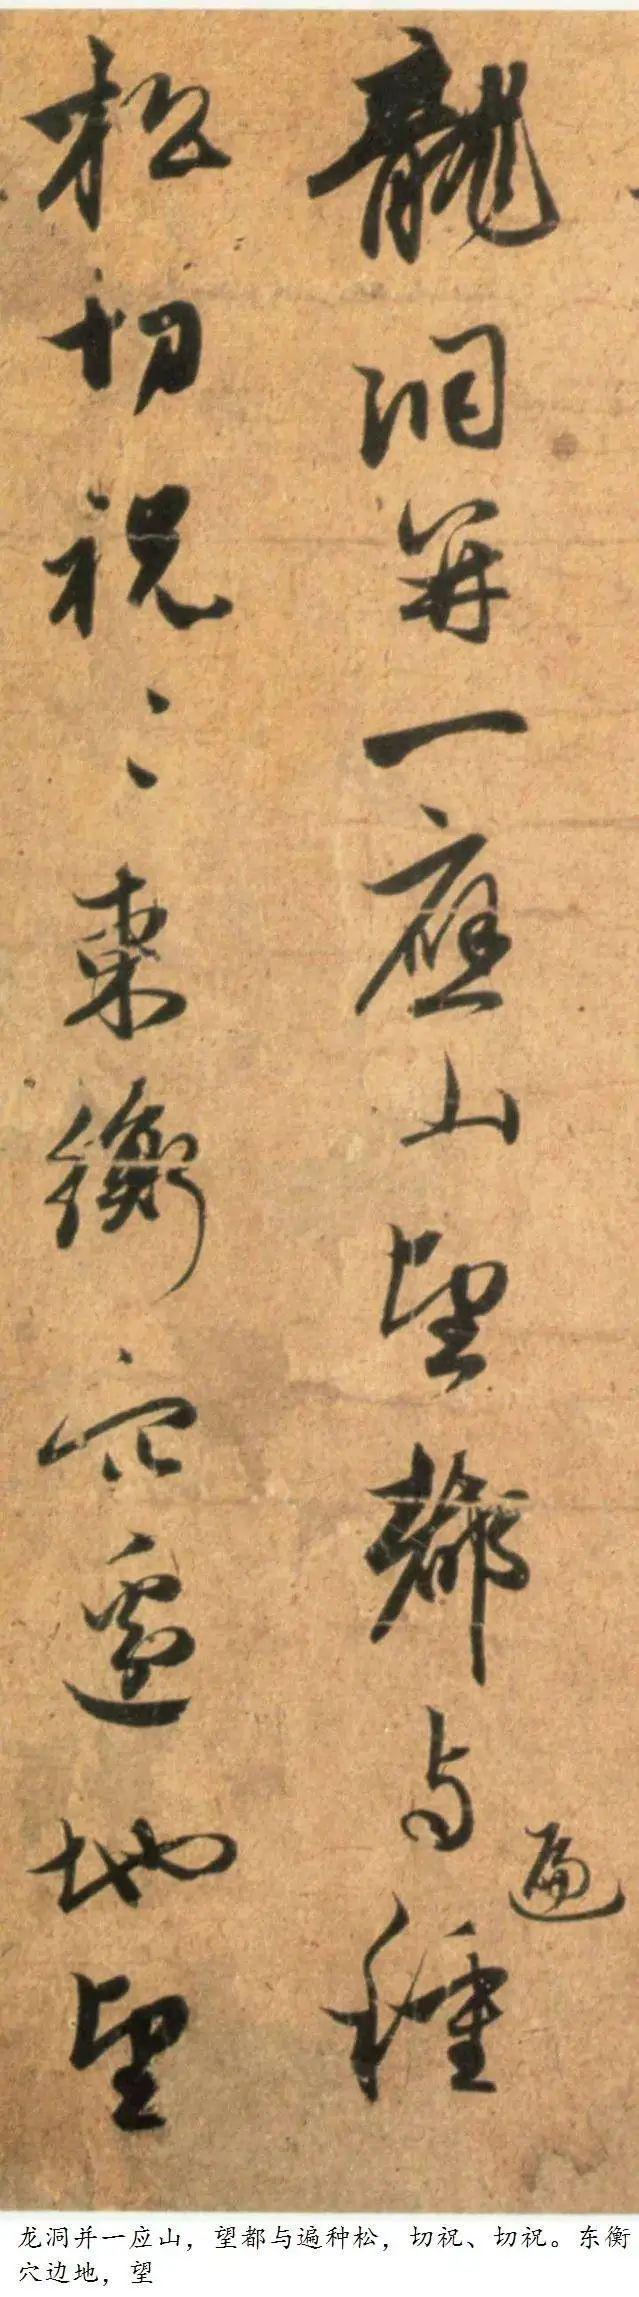 龍洞并一應山望都与遍種
松切祝〻東衡穴邊地望
龙洞并一应山，望都与遍种松，切祝、切祝。东衡
穴边地，望